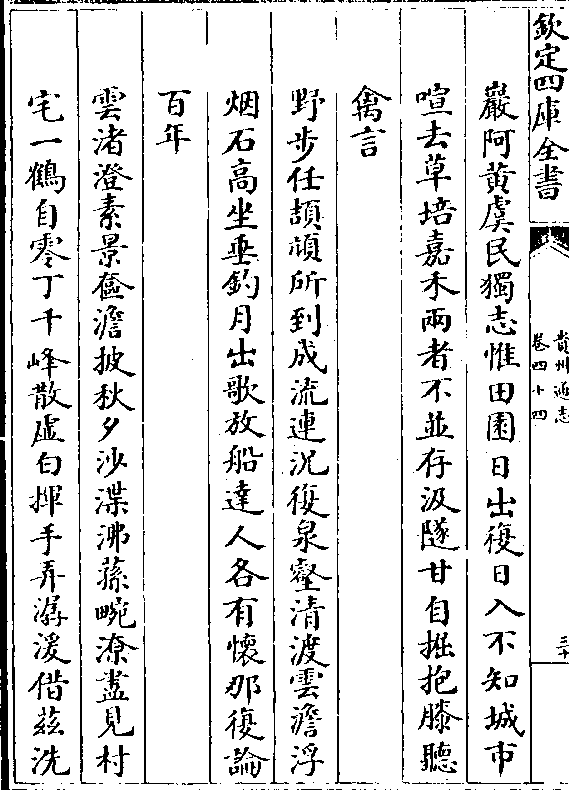 欽定四庫全書
貴州通志
卷四十四
三十
巖阿黃虞民獨志惟田園日出復日入不知城市
喧去草培嘉禾兩者不並存汲隧甘自掘抱膝聽
禽言
野步任頡頏所到成流連況復泉壑清渡雲澹浮
烟石高坐垂釣月出歌放船達人各有懷那復論
百年
雲渚澄素景奩澹披秋夕沙渫沸蓀畹潦盡見村
宅一鶴自零丁千峰散虛白揮手弄潺湲借茲洗